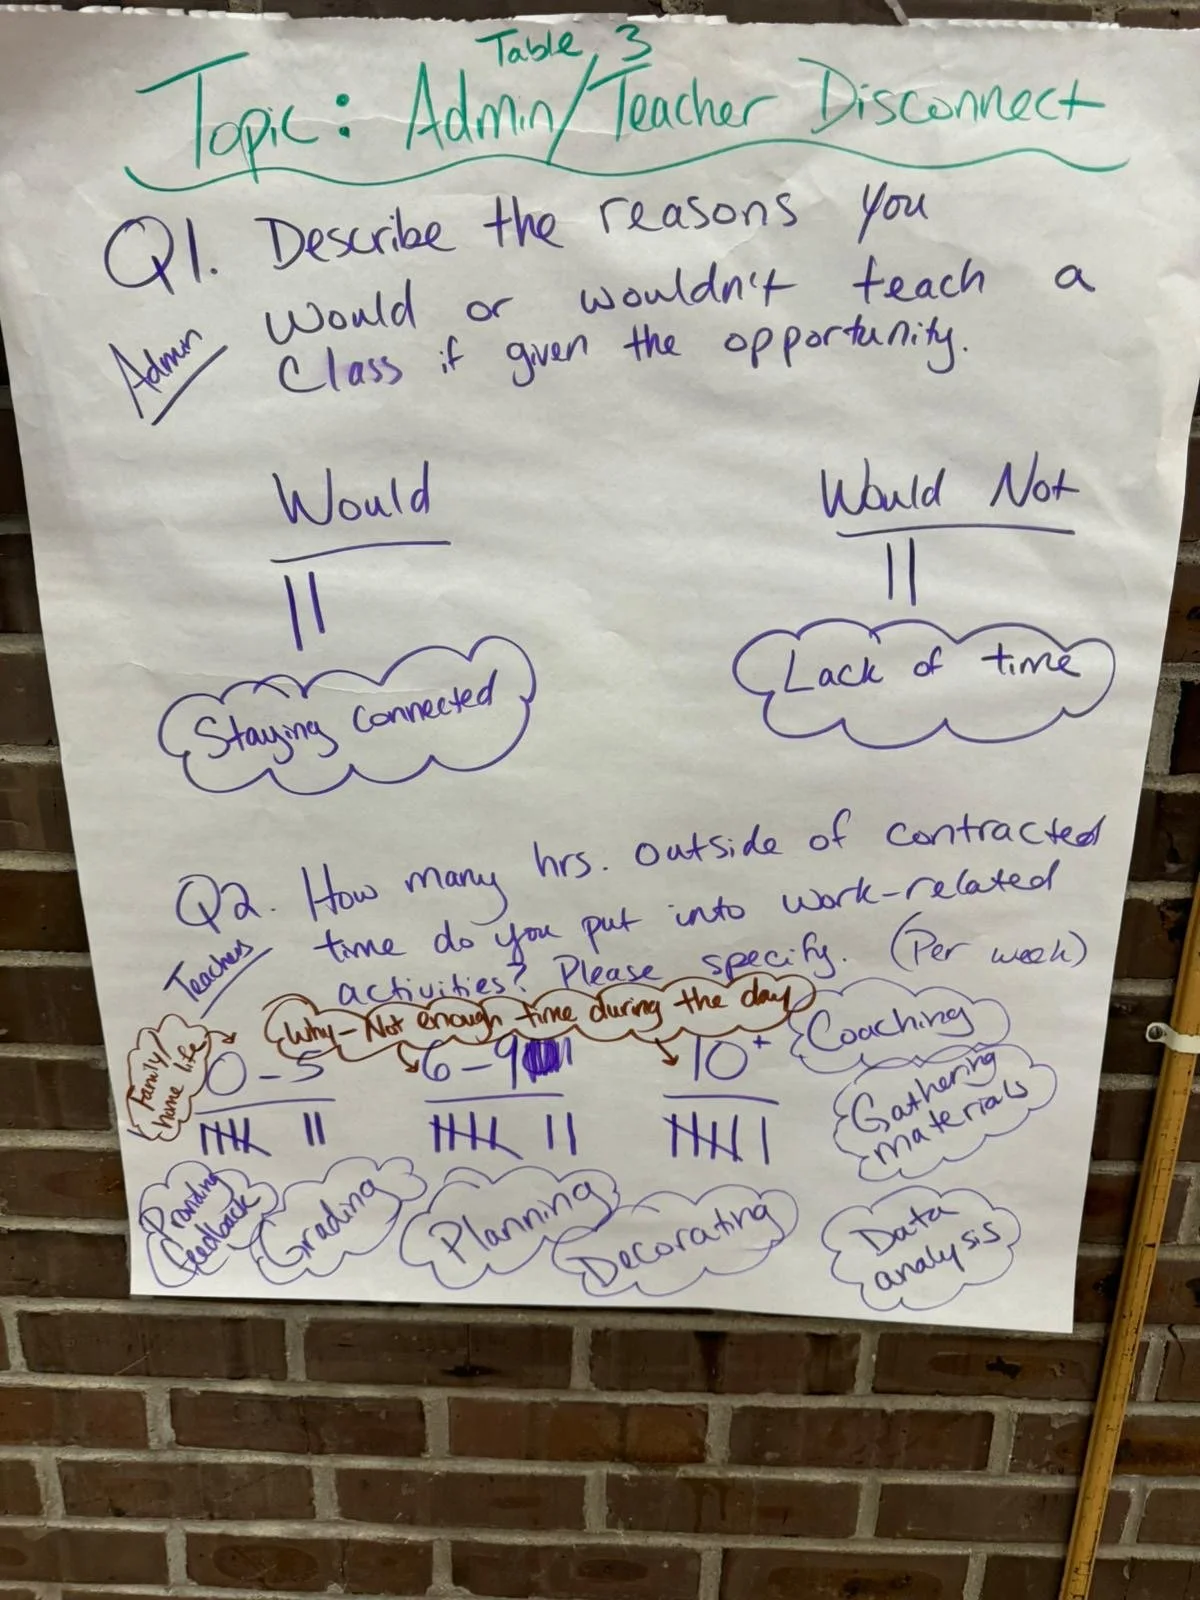 Table 3
Topic: Admin/Teacher Disconnect
Q1. Describe the reasons you
would or wouldn't teach a
Class if given the opportunity.
Admin
Would
Would Not
||
||
Staying Connected
Lack of time
Q2. How many hrs. outside of contracted
time do you put into work-related
activities? Please specify. (Per week)
Teachers
Why - Not enough time during the day
Family/
home life
0-5
6-9
10+
Coaching
Gathering
materials
|||| ||
|||| ||
|||| |
Providing
feedback
Grading
Planning
Decorating
Data
analysis